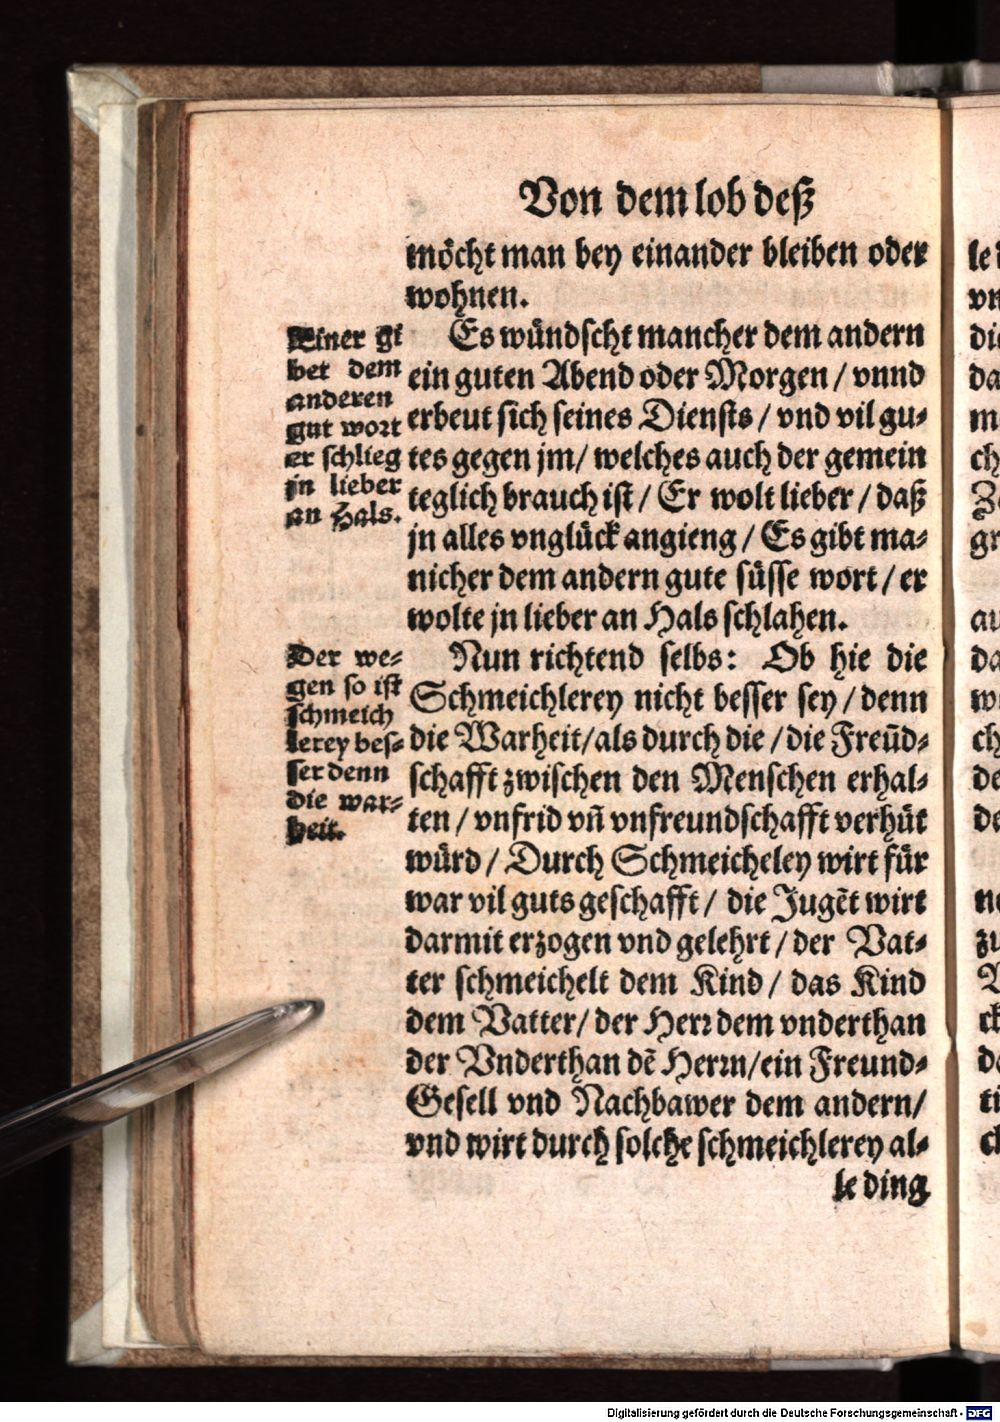 Von dem lob deß
möcht man bey einander bleiben oder
wohnen.
Einer gi
bet dem
anderen
gut wort
er schlieg
jn lieber
an Hals.
Es wündscht mancher dem andern
ein guten Abend oder Morgen / vnnd
erbeut sich seines Diensts / vnd vil gu⸗
tes gegen jm / welches auch der gemein
teglich brauch ist / Er wolt lieber / daß
jn alles vnglück angieng / Es gibt ma⸗
nicher dem andern gute süsse wort / er
wolte jn lieber an Hals schlahen.
Der we⸗
gen so ist
schmeich
lerey bes⸗
ser denn
die war⸗
heit.
Nun richtend selbs: Ob hie die
Schmeichlerey nicht besser sey / denn
die Warheit / als durch die / die Freüd⸗
schafft zwischen den Menschen erhal⸗
ten / vnfrid vñ vnfreundschafft verhüt
würd / Durch Schmeicheley wirt für
war vil guts geschafft / die Jugẽt wirt
darmit erzogen vnd gelehrt / der Vat⸗
ter schmeichelt dem Kind / das Kind
dem Vatter / der Herr dem vnderthan
der Vnderthan dẽ Herrn / ein Freund⸗
Gesell vnd Nachbawer dem andern /
vnd wirt durch solche schmeichlerey al⸗
le ding
Digitalisierung gefördert durch die Deutsche Forschungsgemeinschaft - DFG